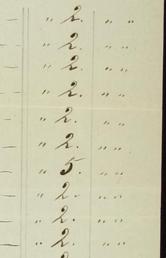 — " 2. " "
— " 2. " "
— " 2. " "
— " 2. " "
— " 2. " "
— " 2. " "
— " 5. " "
— " 2. " "
— " 2. " "
— " 2. " "